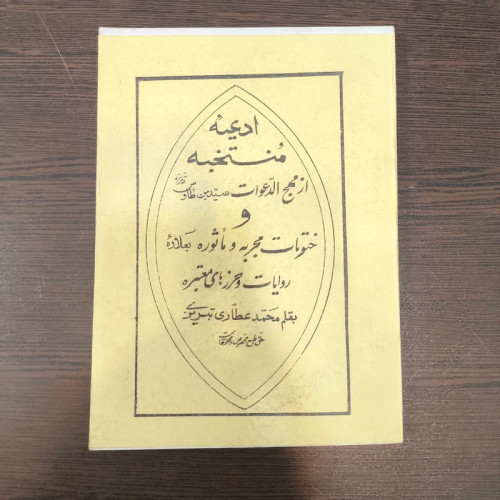 ادعیه
منتخبه
از مهج الدعوات سید بن طاوس
و
ختومات مجربه و مأثوره بعلاوهٔ
روایات و حرزهای معتبره
بقلم محمد عطاری تبریزی
حق طبع محفوظ